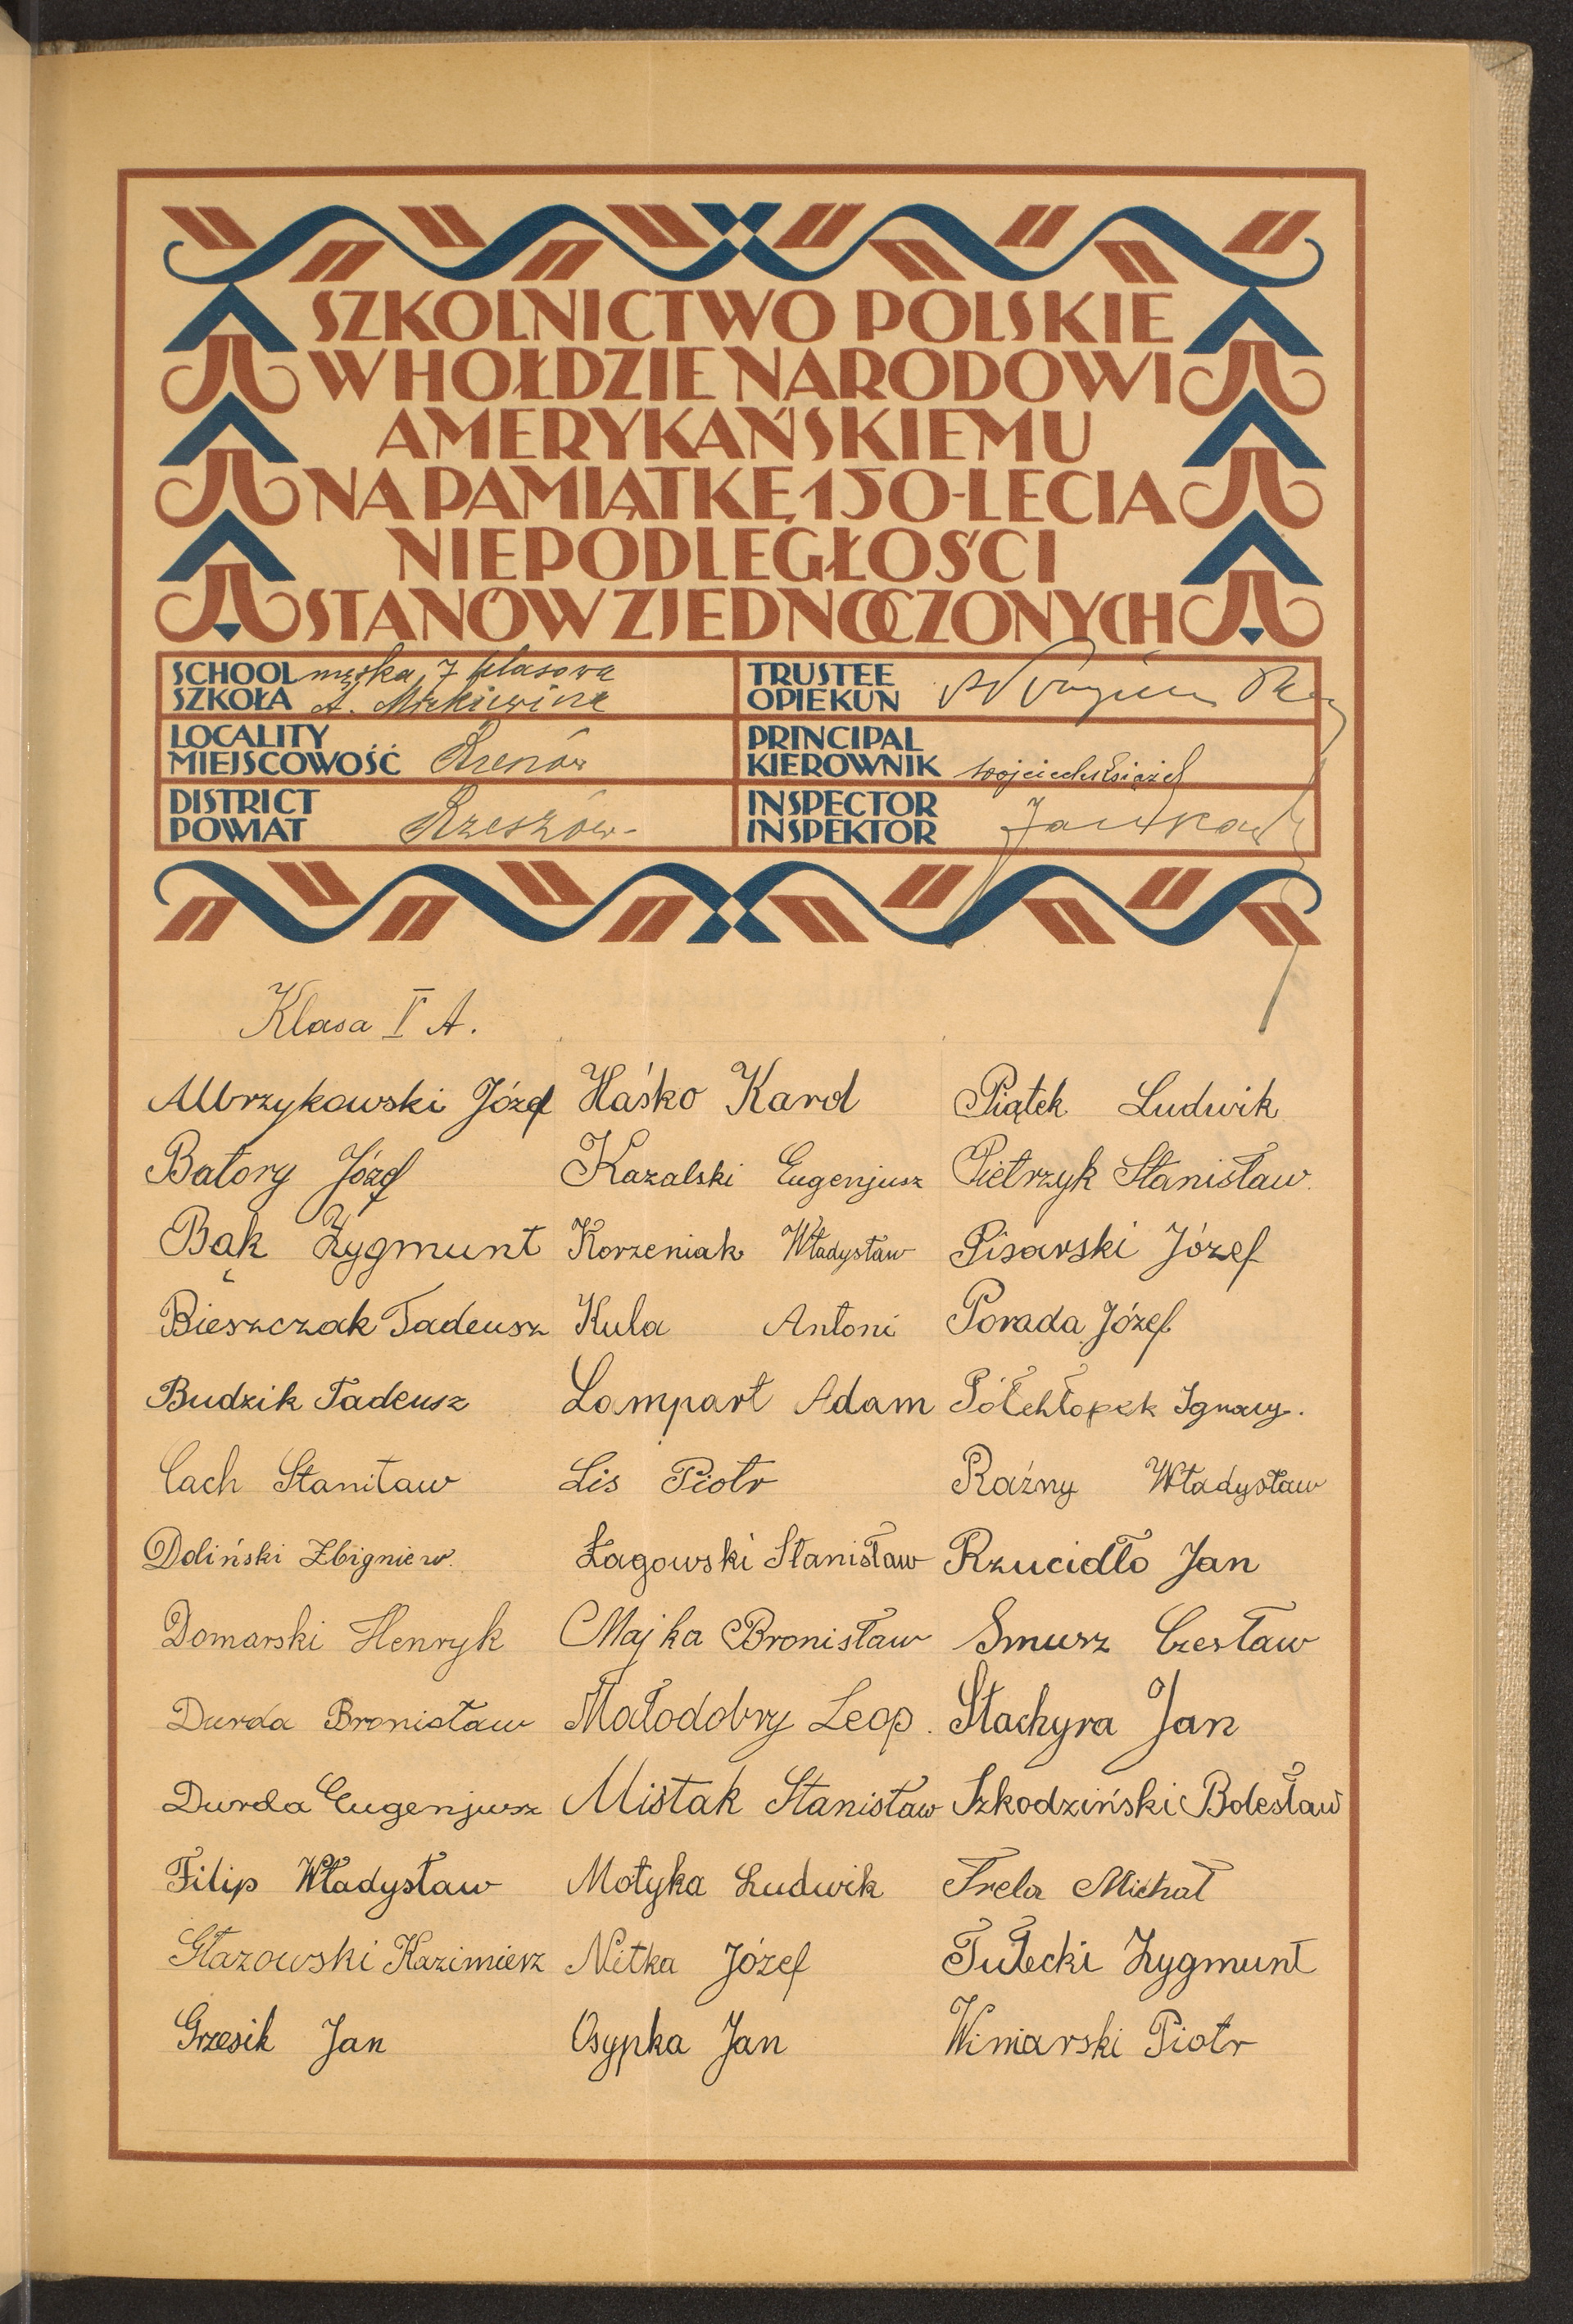 SZKOLNICTWO POLSKIE
W HOŁDZIE NARODOWI
AMERYKAŃSKIEMU
NA PAMIĄTKĘ 150-LECIA
NIEPODLEGŁOŚCI
STANÓW ZJEDNOCZONYCH
SCHOOL męska 7 klasowa
SZKOŁA A. Mickiewicza
TRUSTEE
OPIEKUN
LOCALITY
MIEJSCOWOŚĆ Rzeszów
PRINCIPAL
KIEROWNIK Wojciech Książek
DISTRICT
POWIAT Rzeszów
INSPECTOR
INSPEKTOR
Klasa V A.
Albrzykowski Józef
Batory Józef
Bąk Zygmunt
Bieszczak Tadeusz
Budzik Tadeusz
Cach Stanitaw
Doliński Zbigniew.
Domarski Henryk
Durda Bronisław
Durda Eugenjusz
Filip Władysław
Głazowski Kazimierz
Grzesik Jan
Haśko Karol
Kazalski Eugenjusz
Korzeniak Władysław
Kula Antoni
Lampart Adam
Lis Piotr
Łagowski Stanisław
Majka Bronisław
Małodobry Leop.
Mistak Stanisław
Motyka Ludwik
Nitka Józef
Osypka Jan
Piątek Ludwik
Pietrzyk Stanisław.
Pisarski Józef
Porada Józef
Półchłopek Ignacy.
Raźny Władysław
Rzucidło Jan
Smusz Czesław
Stachyra Jan
Szkodziński Bolesław
Trela Michał
Tułecki Zygmunt
Winiarski Piotr